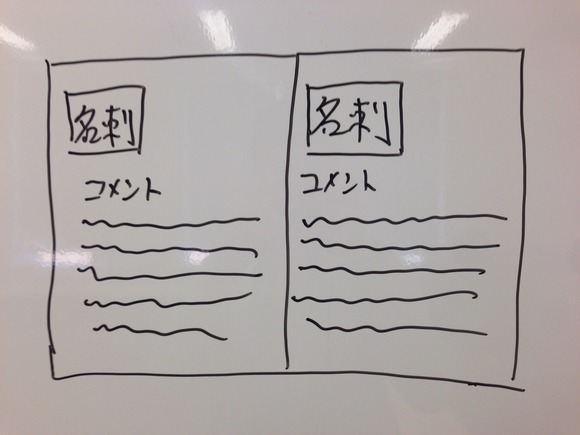 名刺
コメント
名刺
コメント